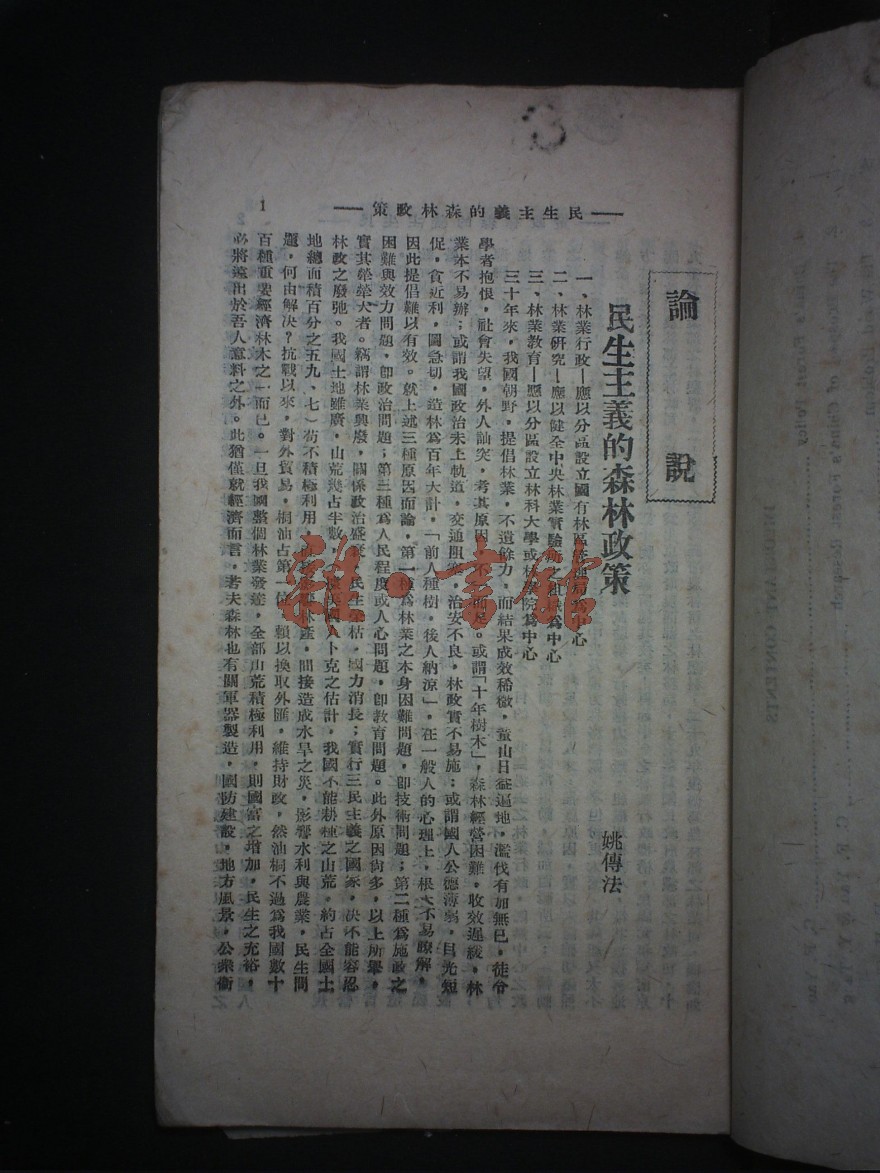 ——民生主義的森林政策——
1
論說
民生主義的森林政策
姚傳法
一、林業行政—應以分區設立國有林區管理局為中心
二、林業研究—應以健全中央林業實驗所之組織為中心
三、林業教育—應以分區設立林科大學或林學院為中心
三十年來，我國朝野，提倡林業，不遺餘力，而結果成效稀微，童山日益遍地，濫伐有加無已，徒令
學者抱恨，社會失望，外人訕突，考其原因，不一而足。或謂「十年樹木」，森林經營困難，收效遲緩，林
業本不易辦；或謂我國政治未上軌道，交通阻塞，治安不良，林政實不易施；或謂國人公德薄弱，目光短
促，貪近利，圖急切，造林為百年大計，「前人種樹，後人納涼」，在一般人的心理上，根本不易瞭解，
因此提倡難以有效。就上述三種原因而論，第一種為林業之本身困難問題，卽技術問題；第二種為施政之
困難與效力問題，卽政治問題；第三種為人民程度或人心問題，卽教育問題。此外原因尙多，以上所舉，
實其犖犖大者。竊謂林業興廢，關係政治盛衰，民生榮枯，國力消長；實行三民主義之國家，決不能容忍
林政之廢弛。我國土地雖廣，山荒幾占半數，英國人卜克之估計，我國不能耕種之山荒。約占全國土
地總面積百分之五九、七）苟不積極利用，林產，間接造成水旱之災，影響水利與農業，民生問
題，何由解決？抗戰以來，對外貿易，桐油占第一位，賴以換取外匯，維持財政，然油桐不過為我國數十
百種重要經濟林木之一而已。一旦我國整個林業發達，全部山荒積極利用，則國富之增加，民生之充裕，
必將遠出於吾人意料之外。此猶僅就經濟而言，若夫森林也有關軍器製造，國防建設，地方風景，公衆衞
雜·書館